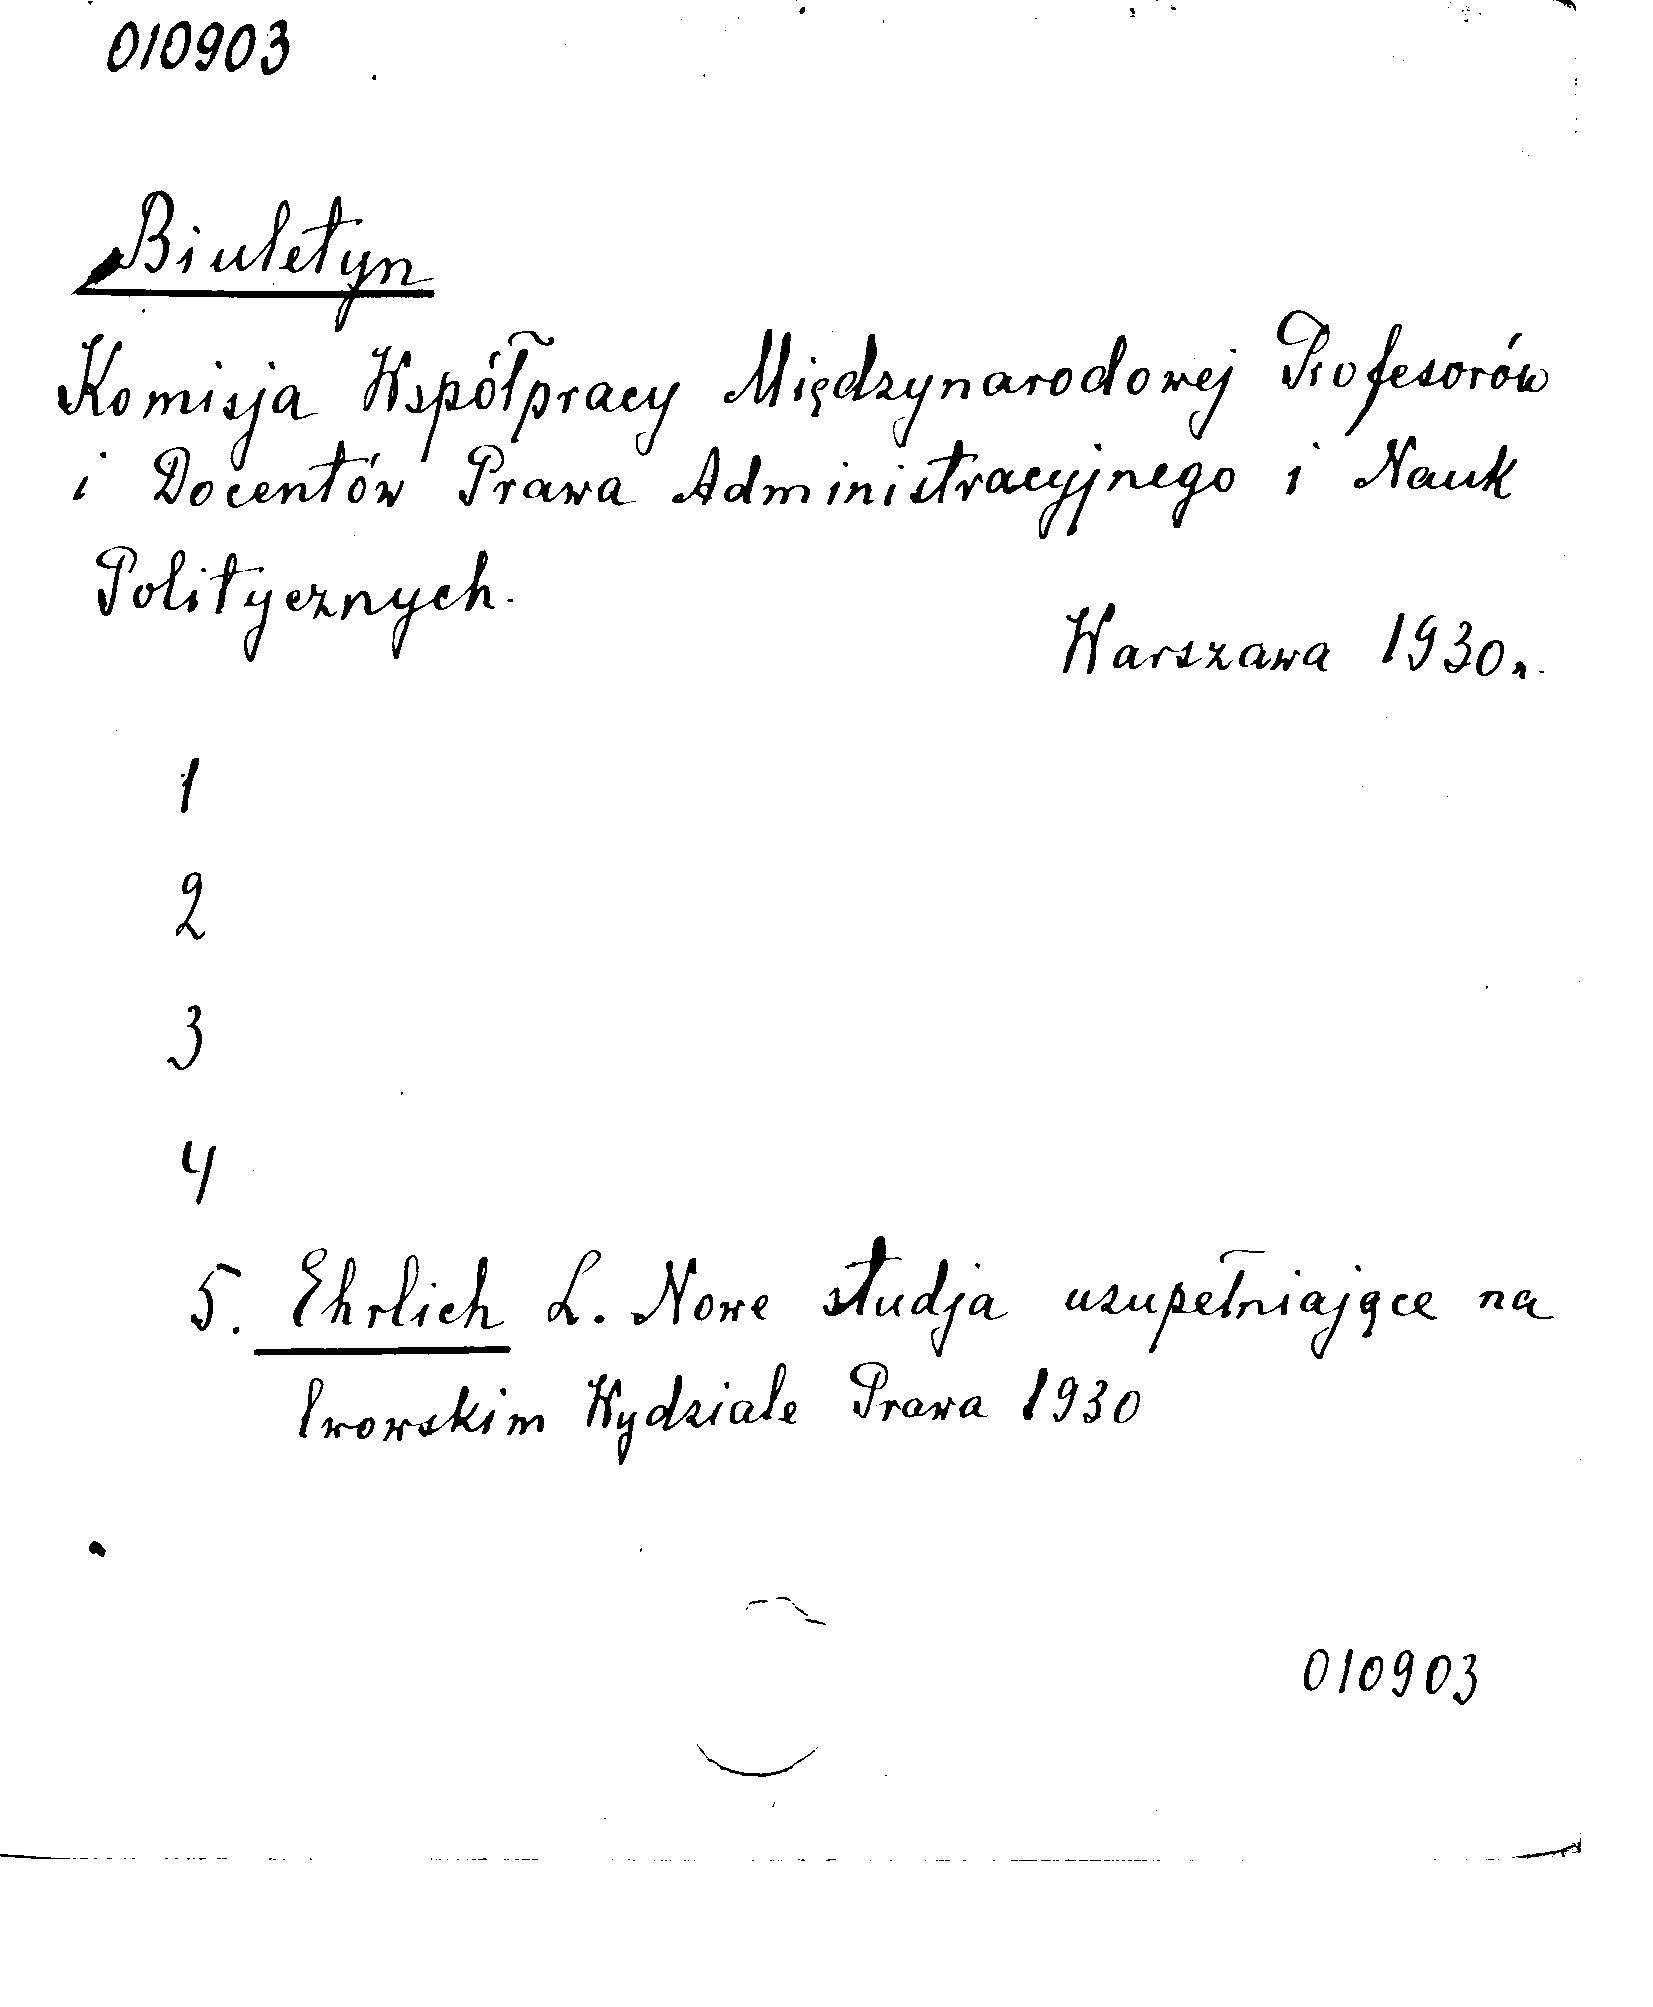 010903
Biuletyn
Komisja Współpracy Międzynarodowej Profesorów
i Docentów Prawa Administracyjnego i Nauk
Politycznych.
Warszawa 1930r.
1
2
3
4
5. Ehrlich L. Nowe studja uzupełniające na
lwowskim Wydziale Prawa 1930
010903